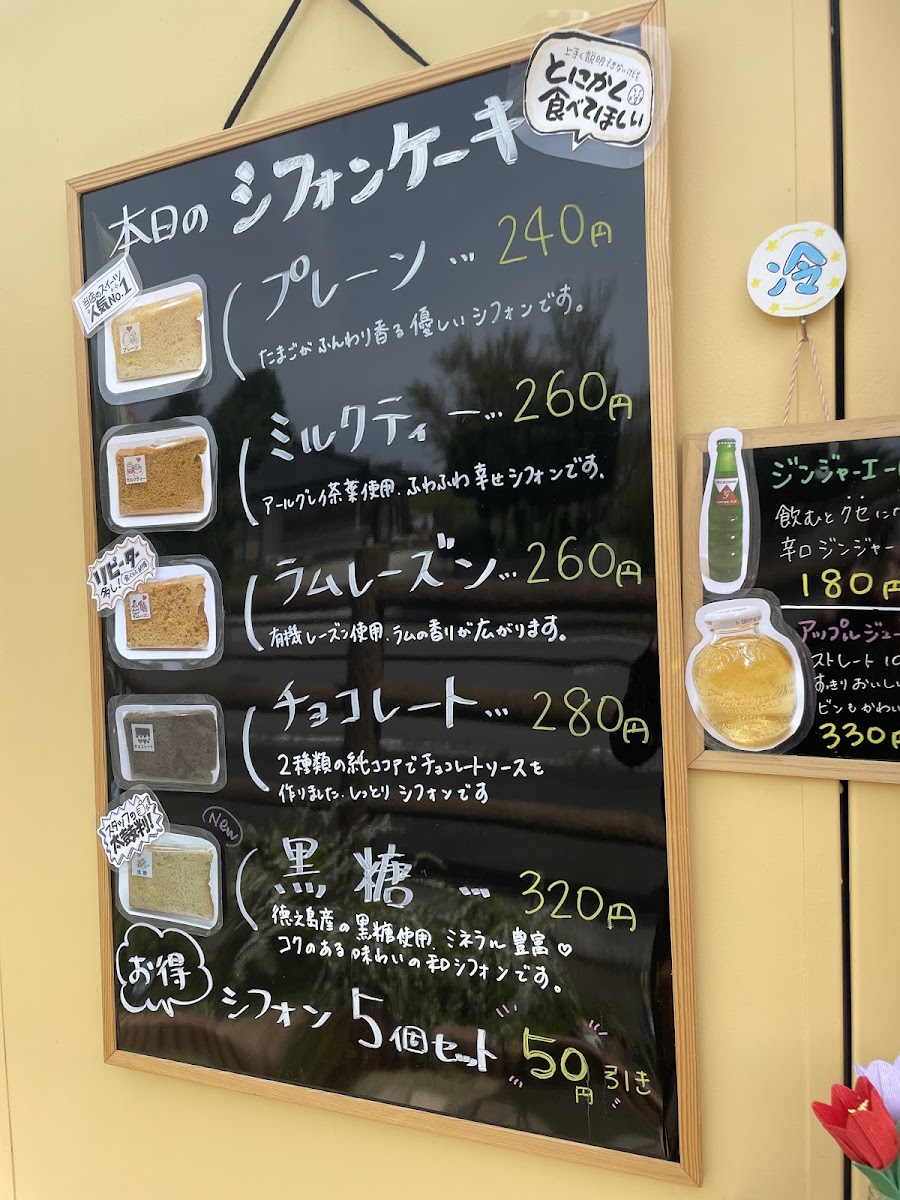 上手く説明できないけど
とにかく
食べてほしい
本日の シフォンケーキ
当店のスイーツ
人気No.1
プレーン
プレーン … 240円
たまごがふんわり香る優しいシフォンです。
ミルクティー
ミルクティー… 260円
アールグレイ茶葉使用、ふわふわ幸せシフォンです。
リピーター
多し!
ラムレーズン… 260円
有機レーズン使用、ラムの香りが広がります。
チョコレート
チョコレート… 280円
2種類の純ココアでチョコレートソースを
作りました、しっとりシフォンです
スタッフの
大勝利!
New
黒糖
黒糖 … 320円
徳之島産の黒糖使用、ミネラル豊富♡
コクのある味わいの和シフォンです。
お得
シフォン 5個セット 50円引き
冷
ジンジャーエー
飲むとクセに
辛口ジンジャー
180円
アップルジュー
ストレート 10
すっきりおいしい
ビンもかわい
330円